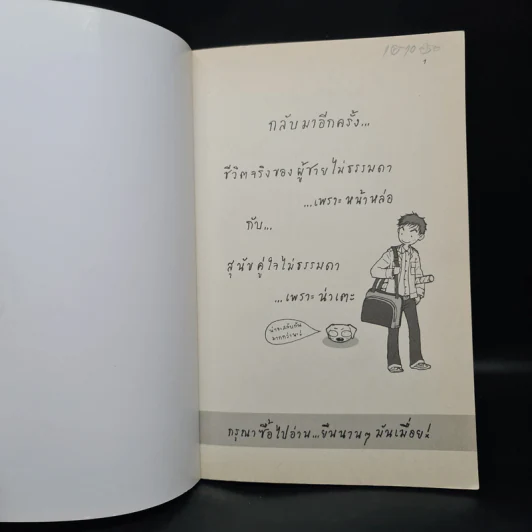 กลับมาอีกครั้ง...
ชีวิตจริงของผู้ชายไม่ธรรมดา
...เพราะหน้าหล่อ
กับ...
สุนัขคู่ใจไม่ธรรมดา
...เพราะน่าเตะ
มากกว่านะ!
กรุณาซื้อไปอ่าน...ยืนนานๆ มันเมื่อย!